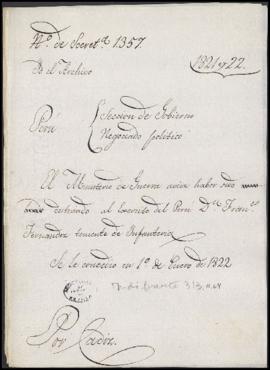 No. de Secreta. 1357.
1821 y 22.
Es el Archivo
Perú
Seccion de Gobierno
Negociado politico
El Ministerio de Guerra avisa haber sido
destinado al Exercito del Perú Dn. Franco.
Fernandez teniente de Infanteria
Se le concedio en 1º de Enero de 1822
Por Cadiz.